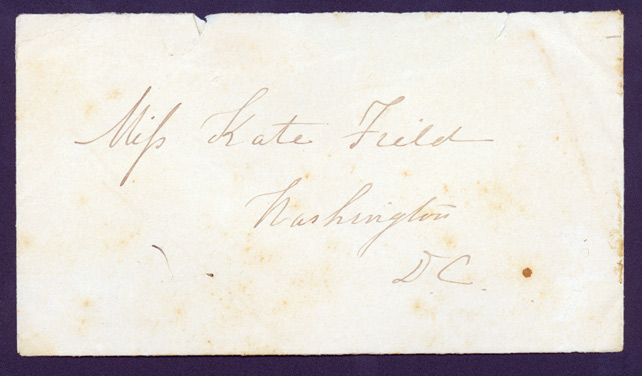 Miss Kate Field
Washington
D.C.